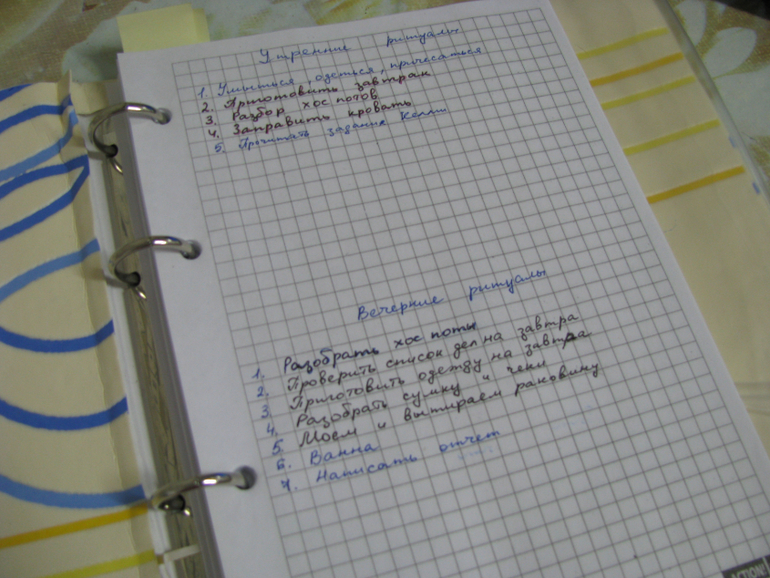 Утренние ритуалы
1. Умыться, одеться, причесаться
2. Приготовить завтрак
3. Разбор хос потов
4. Заправить кровать
5. Прочитать задания Келли
Вечерние ритуалы
1. Разобрать хос поты
2. Проверить список дел на завтра
3. Приготовить одежду на завтра
4. Разобрать сумку и чеки
5. Моем и вытираем раковину
6. Ванна
7. Написать отчет
ACTION!